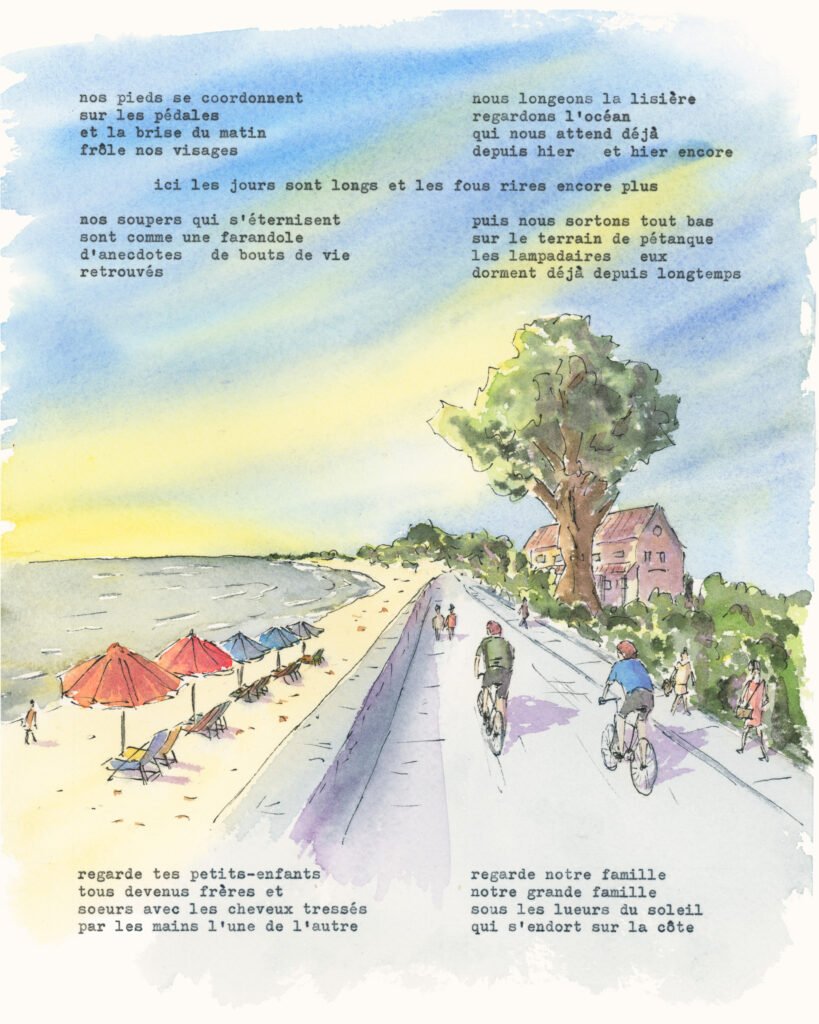 nos pieds se coordonnent
sur les pédales
et la brise du matin
frôle nos visages
nous longeons la lisière
regardons l'océan
qui nous attend déjà
depuis hier   et hier encore
ici les jours sont longs et les fous rires encore plus
nos soupers qui s'éternisent
sont comme une farandole
d'anecdotes   de bouts de vie
retrouvés
puis nous sortons tout bas
sur le terrain de pétanque
les lampadaires   eux
dorment déjà depuis longtemps
regarde tes petits-enfants
tous devenus frères et
soeurs avec les cheveux tressés
par les mains l'une de l'autre
regarde notre famille
notre grande famille
sous les lueurs du soleil
qui s'endort sur la côte